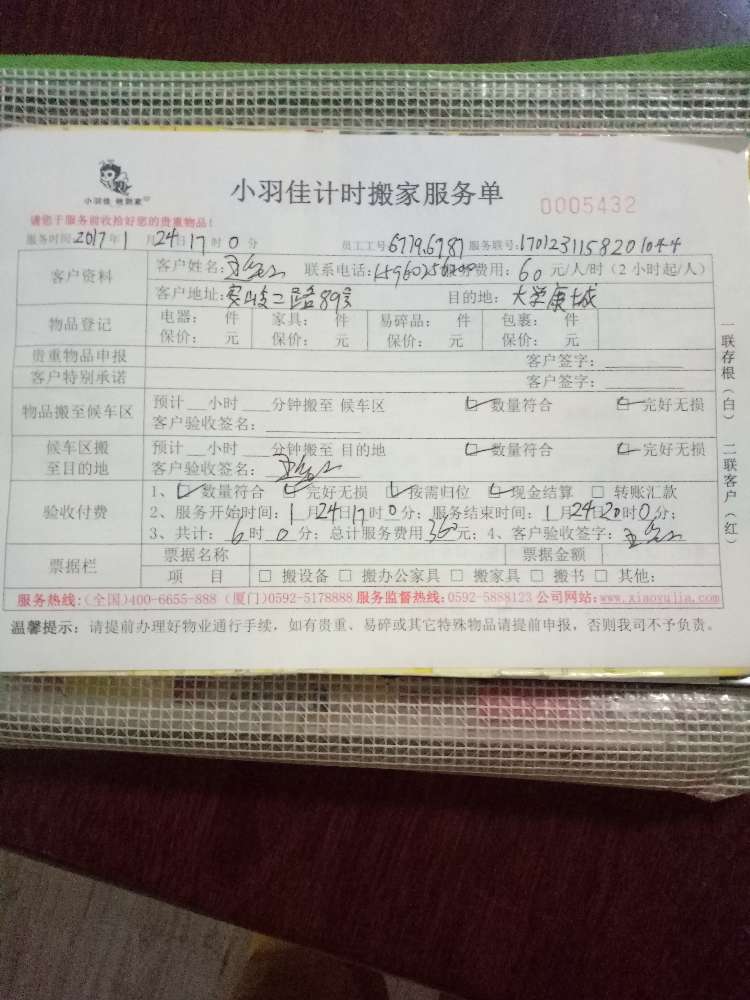 小羽佳计时搬家服务单
0005432
小羽佳
请您于服务前收拾好您的贵重物品!
服务时间2017年1月24日17时0分 员工工号6779.6787 服务联号:1701231158201044
客户资料
客户姓名: 联系电话: 费用:60元/人/时(2小时起/人)
客户地址: 二路89号 目的地:大学康城
物品登记
电器: 件 家具: 件 易碎品: 件 包裹: 件
保价: 元 保价: 元 保价: 元 保价: 元
贵重物品申报 客户签字:
客户特别承诺 客户签字:
物品搬至候车区
预计__小时___分钟搬至 候车区 数量符合 完好无损
客户验收签名:
候车区搬至目的地
预计__小时___分钟搬至 目的地 数量符合 完好无损
客户验收签名:
验收付费
1、数量符合 完好无损 按需归位 现金结算 转账汇款
2、服务开始时间:1月24日17时0分; 服务结束时间:1月24日20时0分;
3、共计:6时0分; 总计服务费用360元; 4、客户验收签字:
票据栏
票据名称 票据金额
项 目 搬设备 搬办公家具 搬家具 搬书 其他:
服务热线:(全国)400-6655-888 (厦门)0592-5178888 服务监督热线:0592-5888123 公司网站:www.xiaoyujia.com
温馨提示:请提前办理好物业通行手续,如有贵重、易碎或其它特殊物品请提前申报,否则我司不予负责。
一联存根(白) 二联客户(红)